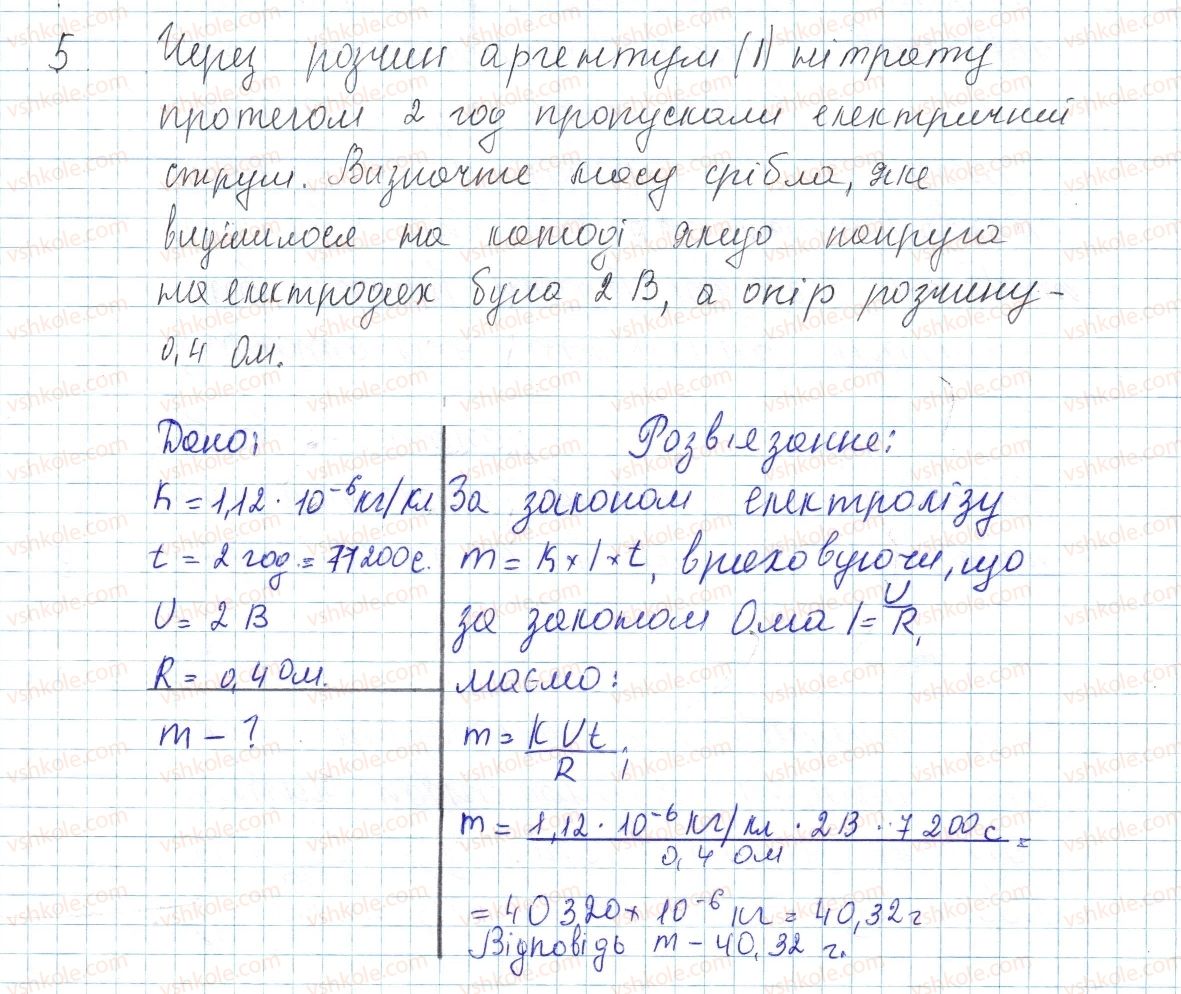 5 Через розчин аргентум (I) нітрату
протягом 2 год пропускали електричний
струм. Визначте масу срібла, яке
виділилося на катоді якщо напруга
на електродах була 2 В, а опір розчину –
0,4 Ом.
Дано:
K = 1,12 · 10⁻⁶ кг/кл
t = 2 год. = 77200 с.
U = 2 В
R = 0,4 Ом.
m – ?
Розв'язання:
За законом електролізу
m = K × I × t, враховуючи, що
за законом Ома I = U/R,
маємо:
m = KUt/R;
m = 1,12 · 10⁻⁶ кг/кл · 2 В · 7 200 с / 0,4 Ом =
= 40 320 × 10⁻⁶ кг = 40,32 г
Відповідь m – 40,32 г.
vshkole.com